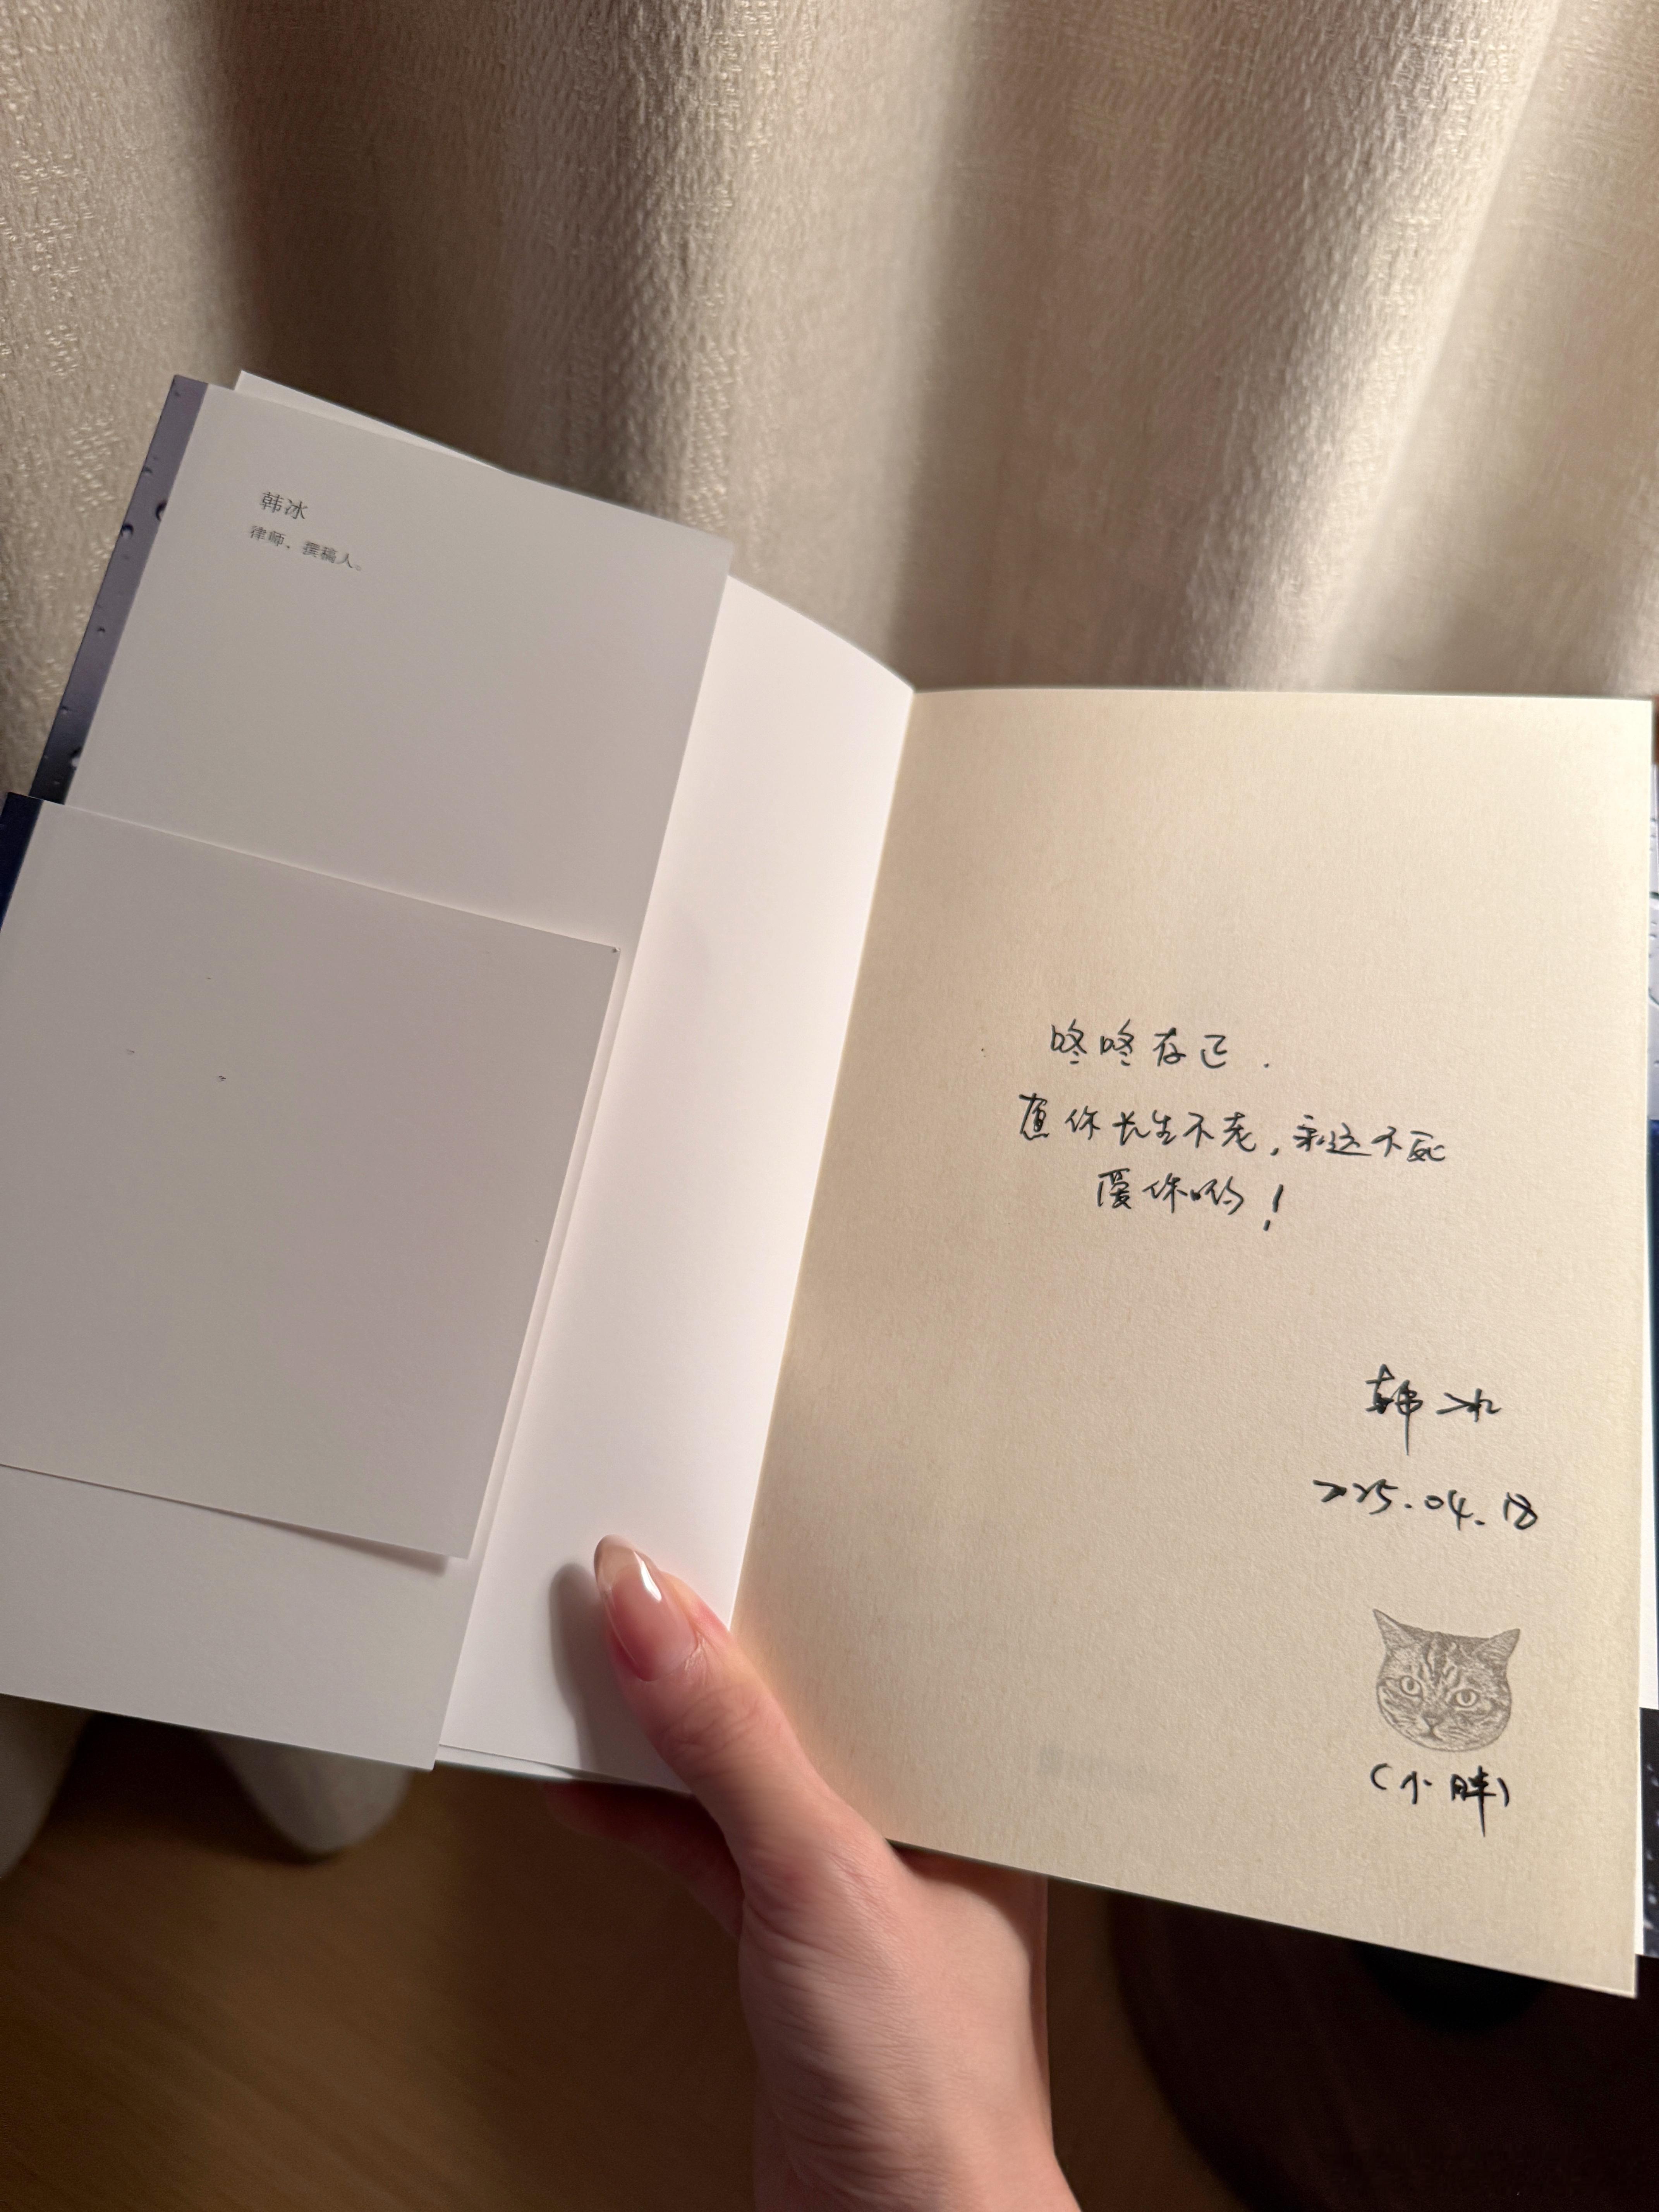 韩冰
律师、撰稿人。
咚咚存正.
愿你长生不老,永远不死
爱你哟!
韩冰
2025.04.18
(小胖)